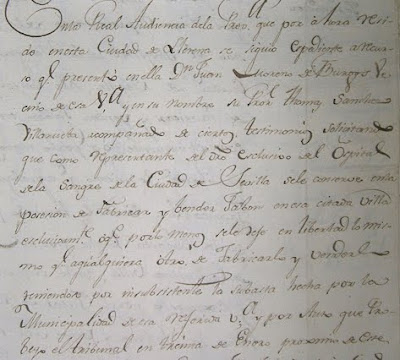 En la Real Audiencia de la Prova que por ahora resi-
de en esta Ciudad de Llerena se siguio expediente a recur-
so qe presento en ella Dn Juan Moreno de Burgos Ve
cino de esa Va y en su nombre su Pror Thomas Sanchez
Villanueba acompañado de ciertos testimonios solicitando
que como representante del dro exclusivo del Ospital
de la Sangre de la Ciudad de Sevilla se le conserve en la
posesion de Fabricar y bender Jabon en esa citada villa
esclusivamte o qe por lo menos se le deje en libertad lo mis-
mo qe a qualquiera otro de Fabricarlo y venderlo
teniendose por insubsistente la subasta hecha por la
Municipalidad de esa referida Va y por Auto que Pro-
beyo el tribunal en treinta de Enero proximo se